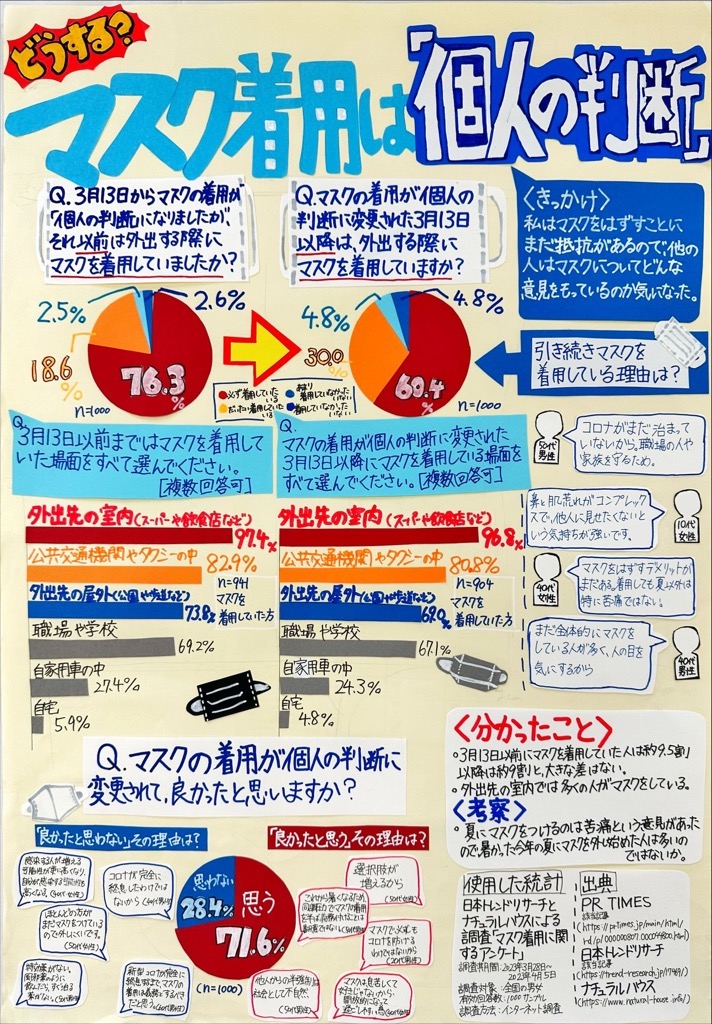 どうする?
マスク着用は「個人の判断」
Q.3月13日からマスクの着用が
「個人の判断」になりましたが、
それ以前は外出する際に
マスクを着用していましたか?
Q.マスクの着用が個人の
判断に変更された3月13日
以降は、外出する際に
マスクを着用していますか?
<きっかけ>
私はマスクをはずすことに
まだ抵抗があるので、他の
人はマスクについてどんな
意見をもっているのか気になった。
2.5%
2.6%
18.6%
76.3%
n=1000
4.8%
4.8%
30.0%
60.4%
n=1000
必ず着用している
だいたい着用している
あまり着用していなかった
着用していなかった
引き続きマスクを
着用している理由は?
Q.
3月13日以前まではマスクを着用して
いた場面をすべて選んでください。
[複数回答可]
Q.
マスクの着用が個人の判断に変更された
3月13日以降にマスクを着用している場面を
すべて選んでください。[複数回答可]
50代男性
コロナがまだ治まって
いないから。職場の人や
家族を守るため。
鼻と肌荒れがコンプレックス
で、他人に見せたくないと
いう気持ちが強いです。
10代女性
40代女性
マスクをはずすデメリットが
まだある。着用しても夏以外は
特に苦痛ではない。
まだ全体的にマスクを
している人が多く、人の目を
気にするから
40代男性
外出先の室内(スーパーや飲食店など)
97.4%
公共交通機関やタクシーの中
82.9%
外出先の屋外(公園や歩道など)
73.8%
職場や学校
69.2%
自家用車の中
27.4%
自宅
5.9%
n=941
マスクを
着用していた方
外出先の室内(スーパーや飲食店など)
96.8%
公共交通機関やタクシーの中
80.8%
外出先の屋外(公園や歩道など)
69.0%
職場や学校
67.1%
自家用車の中
24.3%
自宅
4.8%
n=904
マスクを
着用していた方
Q.マスクの着用が個人の判断に
変更されて、良かったと思いますか?
<分かったこと>
・3月13日以前にマスクを着用していた人は約9.5割
以降は約9割と、大きな差はない。
・外出先の室内では多くの人がマスクをしている。
<考察>
・夏にマスクをつけるのは苦痛という意見があった
ので、暑かった今年の夏にマスクを外し始めた人は多いの
ではないか。
「良かったと思わない」その理由は?
「良かったと思う」その理由は?
思わない
28.4%
思う
71.6%
(n=1000)
感染する人が増える
可能性が更に高くなり、
コロナが完全に
終息したわけでは
ないから
ほとんどの方が
まだマスクをつけている
ので外しにくいです。
特効薬がない。
選択肢が
増えるから
(50代女性)
マスクで必ずも
コロナを防げるわけ
ではないから
使用した統計
日本トレンドリサーチと
ナチュラルハウスによる
調査「マスク着用に関す
るアンケート」
調査期間:2023年3月28日~
2023年4月5日
調査対象:全国の男女
有効回答数:1000サンプル
調査方法:インターネット調査
出典
PR TIMES
該当記事
日本トレンドリサーチ
該当記事
ナチュラルハウス